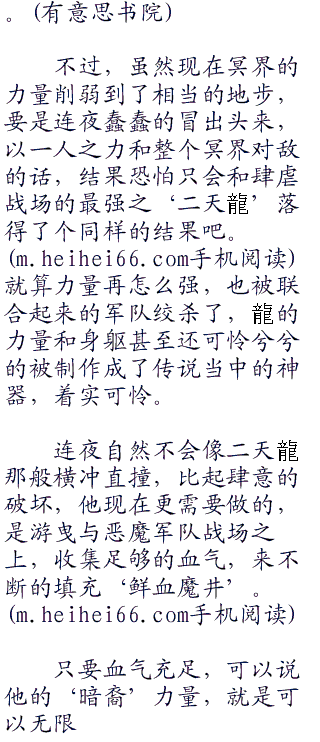 。(有意思书院)
不过，虽然现在冥界的
力量削弱到了相当的地步，
要是连夜蠢蠢的冒出头来，
以一人之力和整个冥界对敌
的话，结果恐怕只会和肆虐
战场的最强之‘二天龍’落
得了个同样的结果吧。
(m.heihei66.com手机阅读)
就算力量再怎么强，也被联
合起来的军队绞杀了，龍的
力量和身躯甚至还可怜兮兮
的被制作成了传说当中的神
器，着实可怜。
连夜自然不会像二天龍
那般横冲直撞，比起肆意的
破坏，他现在更需要做的，
是游曳与恶魔军队战场之
上，收集足够的血气，来不
断的填充‘鲜血魔井’。
(m.heihei66.com手机阅读)
只要血气充足，可以说
他的‘暗裔’力量，就是可
以无限